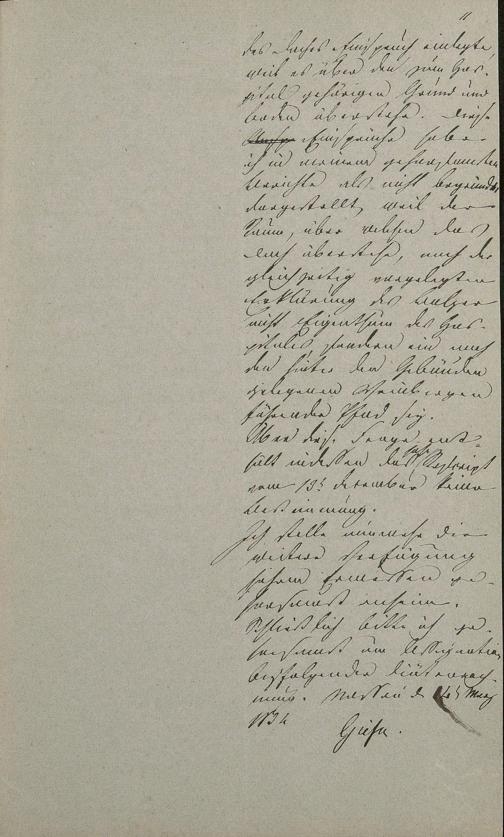 11
des Daches Einspruch einlegte,
weil es über den zum Hos-
pital gehörigen Grund und
boden überstehe. Diese
Einsprüche habe
ich in meinem gehorsamsten
Berichte als nicht begründet
dargestellt, weil der
Raum, über welchen das
Dach überstehe, nach der
gleichzeitig vorgelegten
Erklärung des
nicht Eigenthum des Hos-
pitales, sondern ein nach
den hinter den Gebäuden
gelegenen Weinbergen
führender Pfad sey.
Über diese Frage ent-
hält indessen das Rescript
vom 13t December keine
Bestimmung.
Ich stelle nunmehr die
weitere Verfügung
hohem Ermessen ge-
horsamst anheim.
Schließlich bitte ich ge-
horsamst um Assignation
beyfolgender Diätenrech-
nung. Meißen d. 14t März
1832